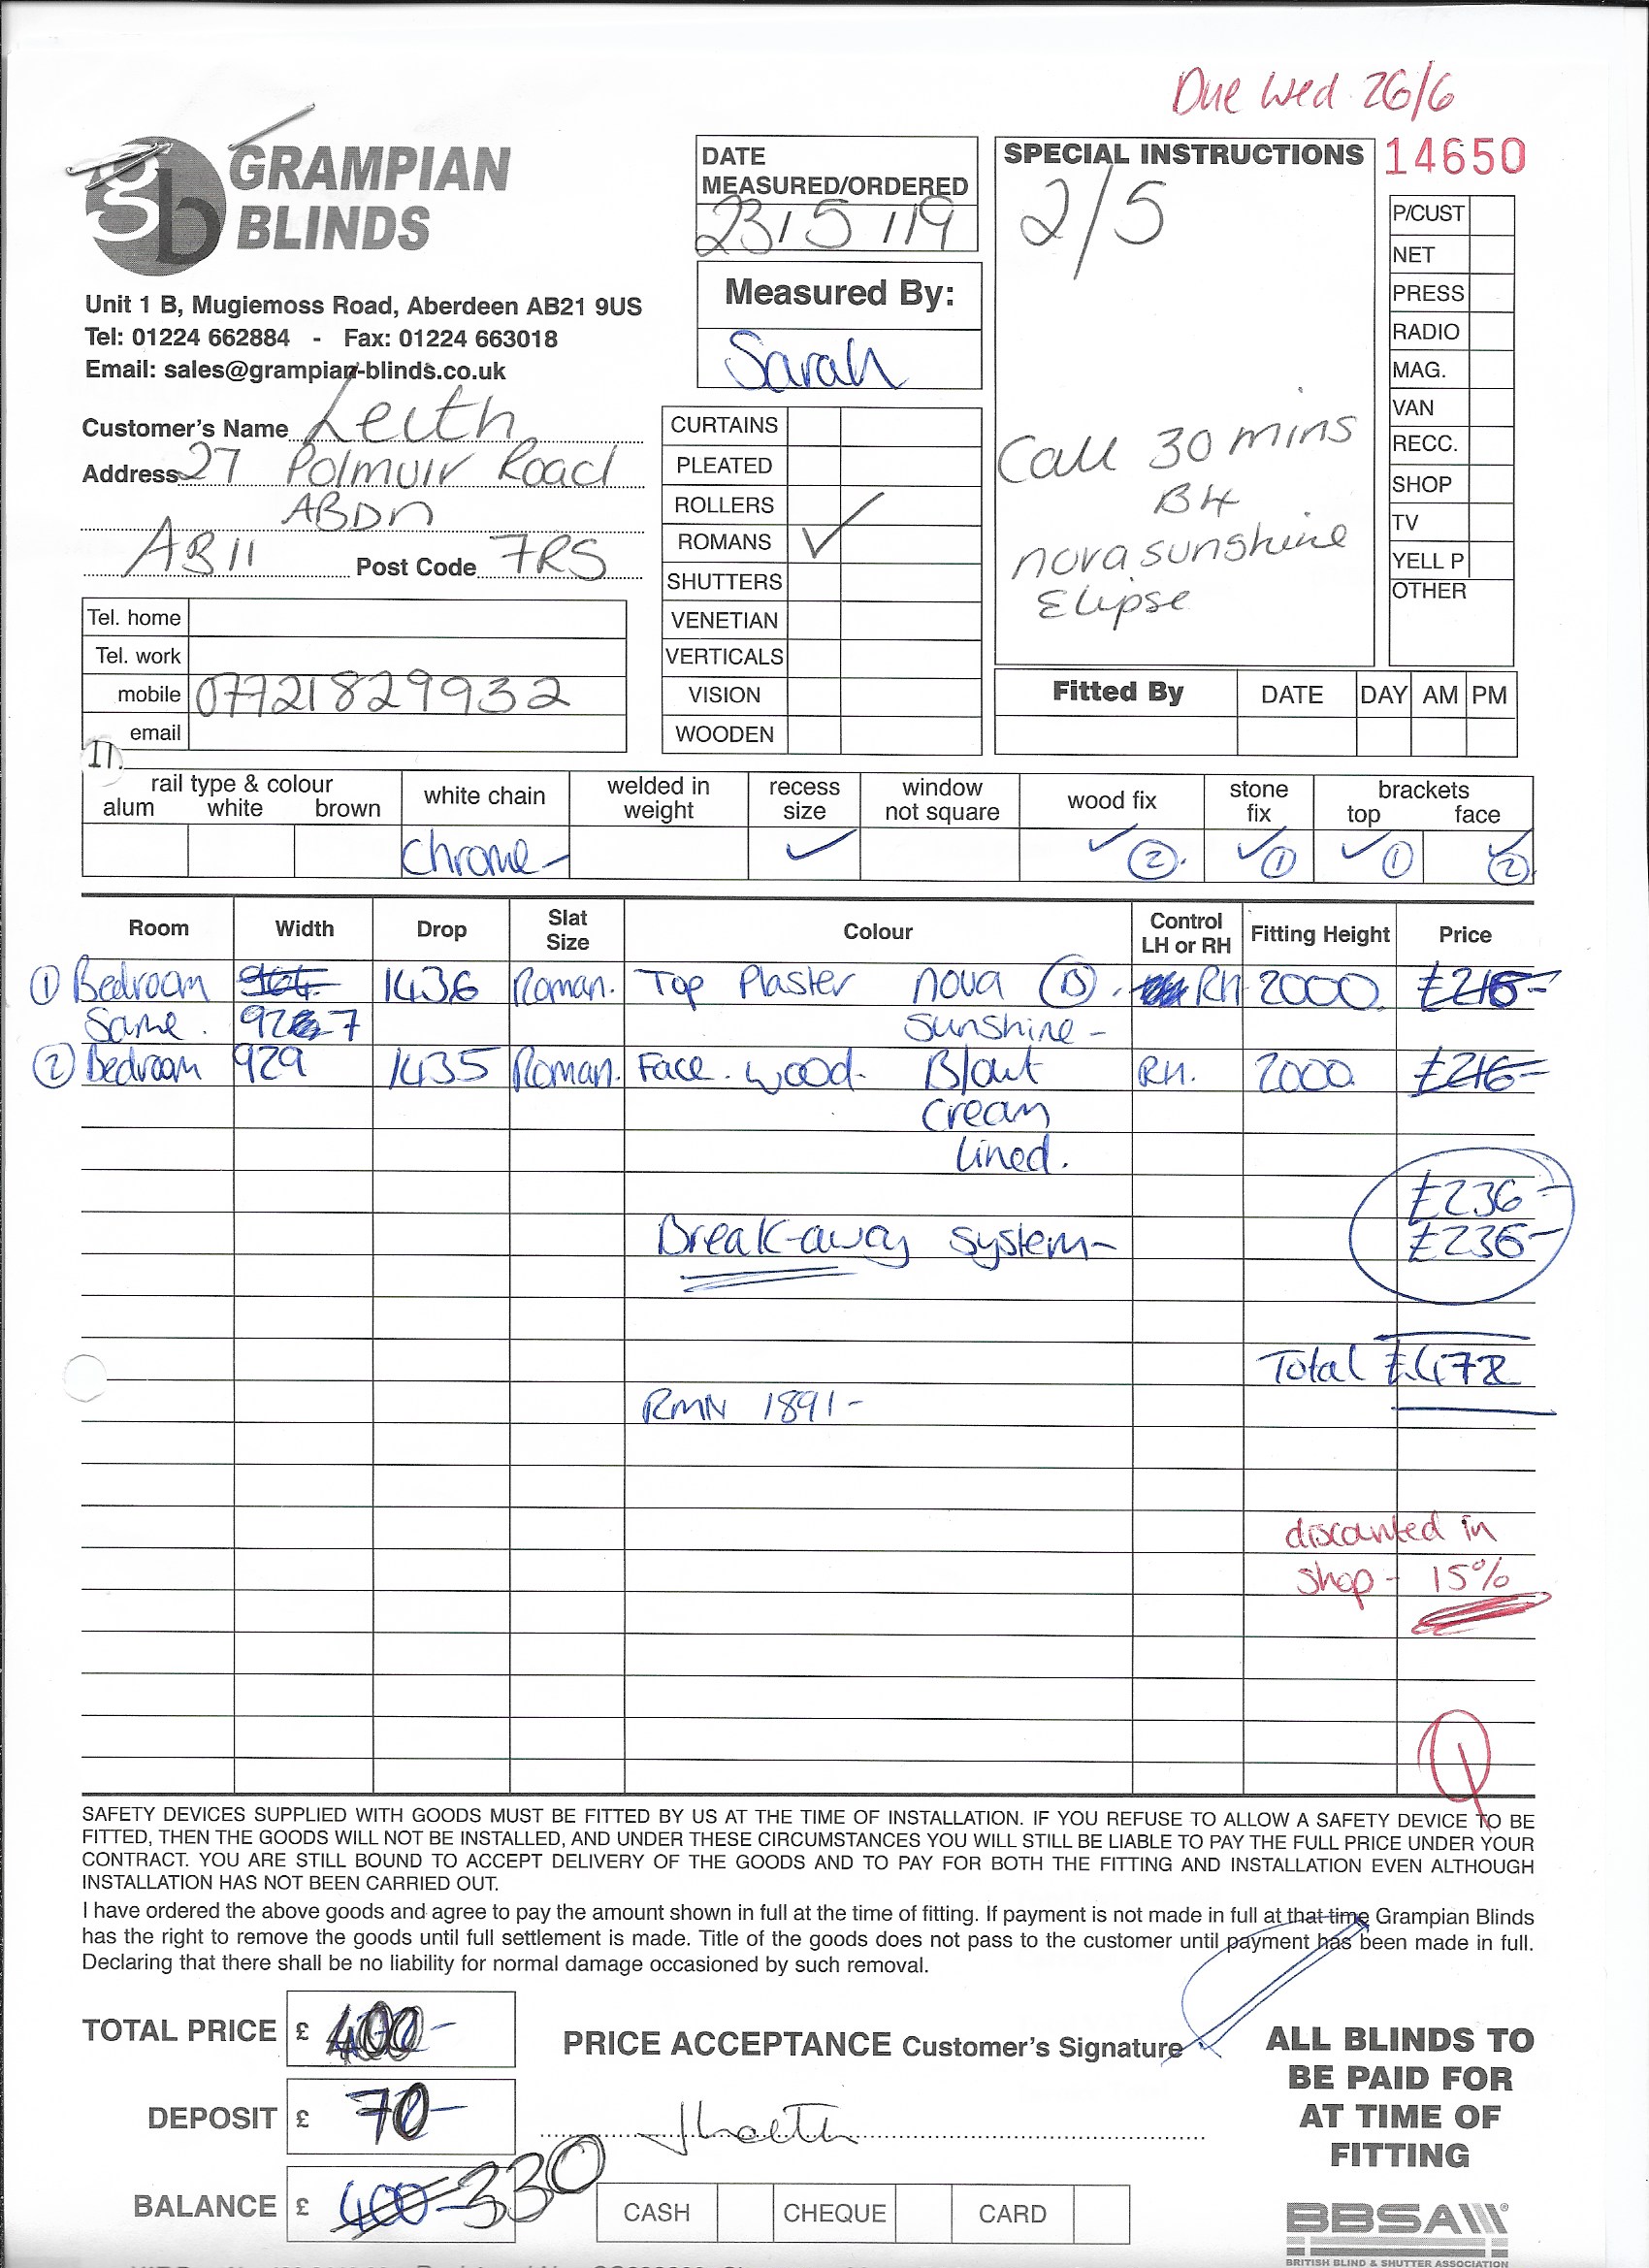 Due Wed 26/6
GRAMPIAN
BLINDS
Unit 1 B, Mugiemoss Road, Aberdeen AB21 9US
Tel: 01224 662884 - Fax: 01224 663018
Email: sales@grampian-blinds.co.uk
Customer's Name Leith
Address 27 Polmuir Road
ABDN
AB11 Post Code 7RS
Tel. home
Tel. work
mobile 07721829932
email
DATE
MEASURED/ORDERED
23/5/19
Measured By:
Sarah
CURTAINS
PLEATED
ROLLERS
ROMANS ✓
SHUTTERS
VENETIAN
VERTICALS
VISION
WOODEN
SPECIAL INSTRUCTIONS
2/5
Call 30 mins
B4
nova sunshine
Elipse
14650
P/CUST
NET
PRESS
RADIO
MAG.
VAN
RECC.
SHOP
TV
YELL P
OTHER
Fitted By DATE DAY AM PM
rail type & colour white chain welded in weight recess size window not square wood fix stone fix brackets
alum white brown top face
Chrome - ✓ ✓ 2. ✓ 1 ✓ 1 ✓ 2
Room Width Drop Slat Size Colour Control LH or RH Fitting Height Price
1 Bedroom 964 1436 Roman. Top Plaster nova B. RH 2000. £216-
Same. 927 sunshine -
2 Bedroom 929 1435 Roman. Face. wood. B/out RH. 2000. £216-
Cream
lined.
£236-
Break-away system- £236-
Total £472
RMN 1891-
discounted in
shop - 15%
SAFETY DEVICES SUPPLIED WITH GOODS MUST BE FITTED BY US AT THE TIME OF INSTALLATION. IF YOU REFUSE TO ALLOW A SAFETY DEVICE TO BE
FITTED, THEN THE GOODS WILL NOT BE INSTALLED, AND UNDER THESE CIRCUMSTANCES YOU WILL STILL BE LIABLE TO PAY THE FULL PRICE UNDER YOUR
CONTRACT. YOU ARE STILL BOUND TO ACCEPT DELIVERY OF THE GOODS AND TO PAY FOR BOTH THE FITTING AND INSTALLATION EVEN ALTHOUGH
INSTALLATION HAS NOT BEEN CARRIED OUT.
I have ordered the above goods and agree to pay the amount shown in full at the time of fitting. If payment is not made in full at that time Grampian Blinds
has the right to remove the goods until full settlement is made. Title of the goods does not pass to the customer until payment has been made in full.
Declaring that there shall be no liability for normal damage occasioned by such removal.
TOTAL PRICE £ 400-
DEPOSIT £ 70-
BALANCE £ 400- 330
PRICE ACCEPTANCE Customer's Signature
CASH CHEQUE CARD
ALL BLINDS TO
BE PAID FOR
AT TIME OF
FITTING
BBSA
BRITISH BLIND & SHUTTER ASSOCIATION